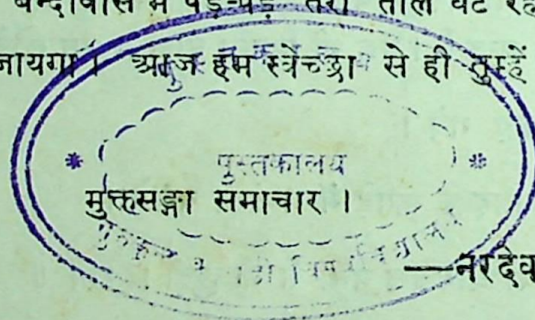 बन्दीवास में पड़े-पड़े तेरा तोल घट
जायगा । आज हम स्वेच्छा से ही तुम्हें
पुस्तकालय
मुक्तसङ्गा समाचार ।
गुरुकुल
—नरदेव